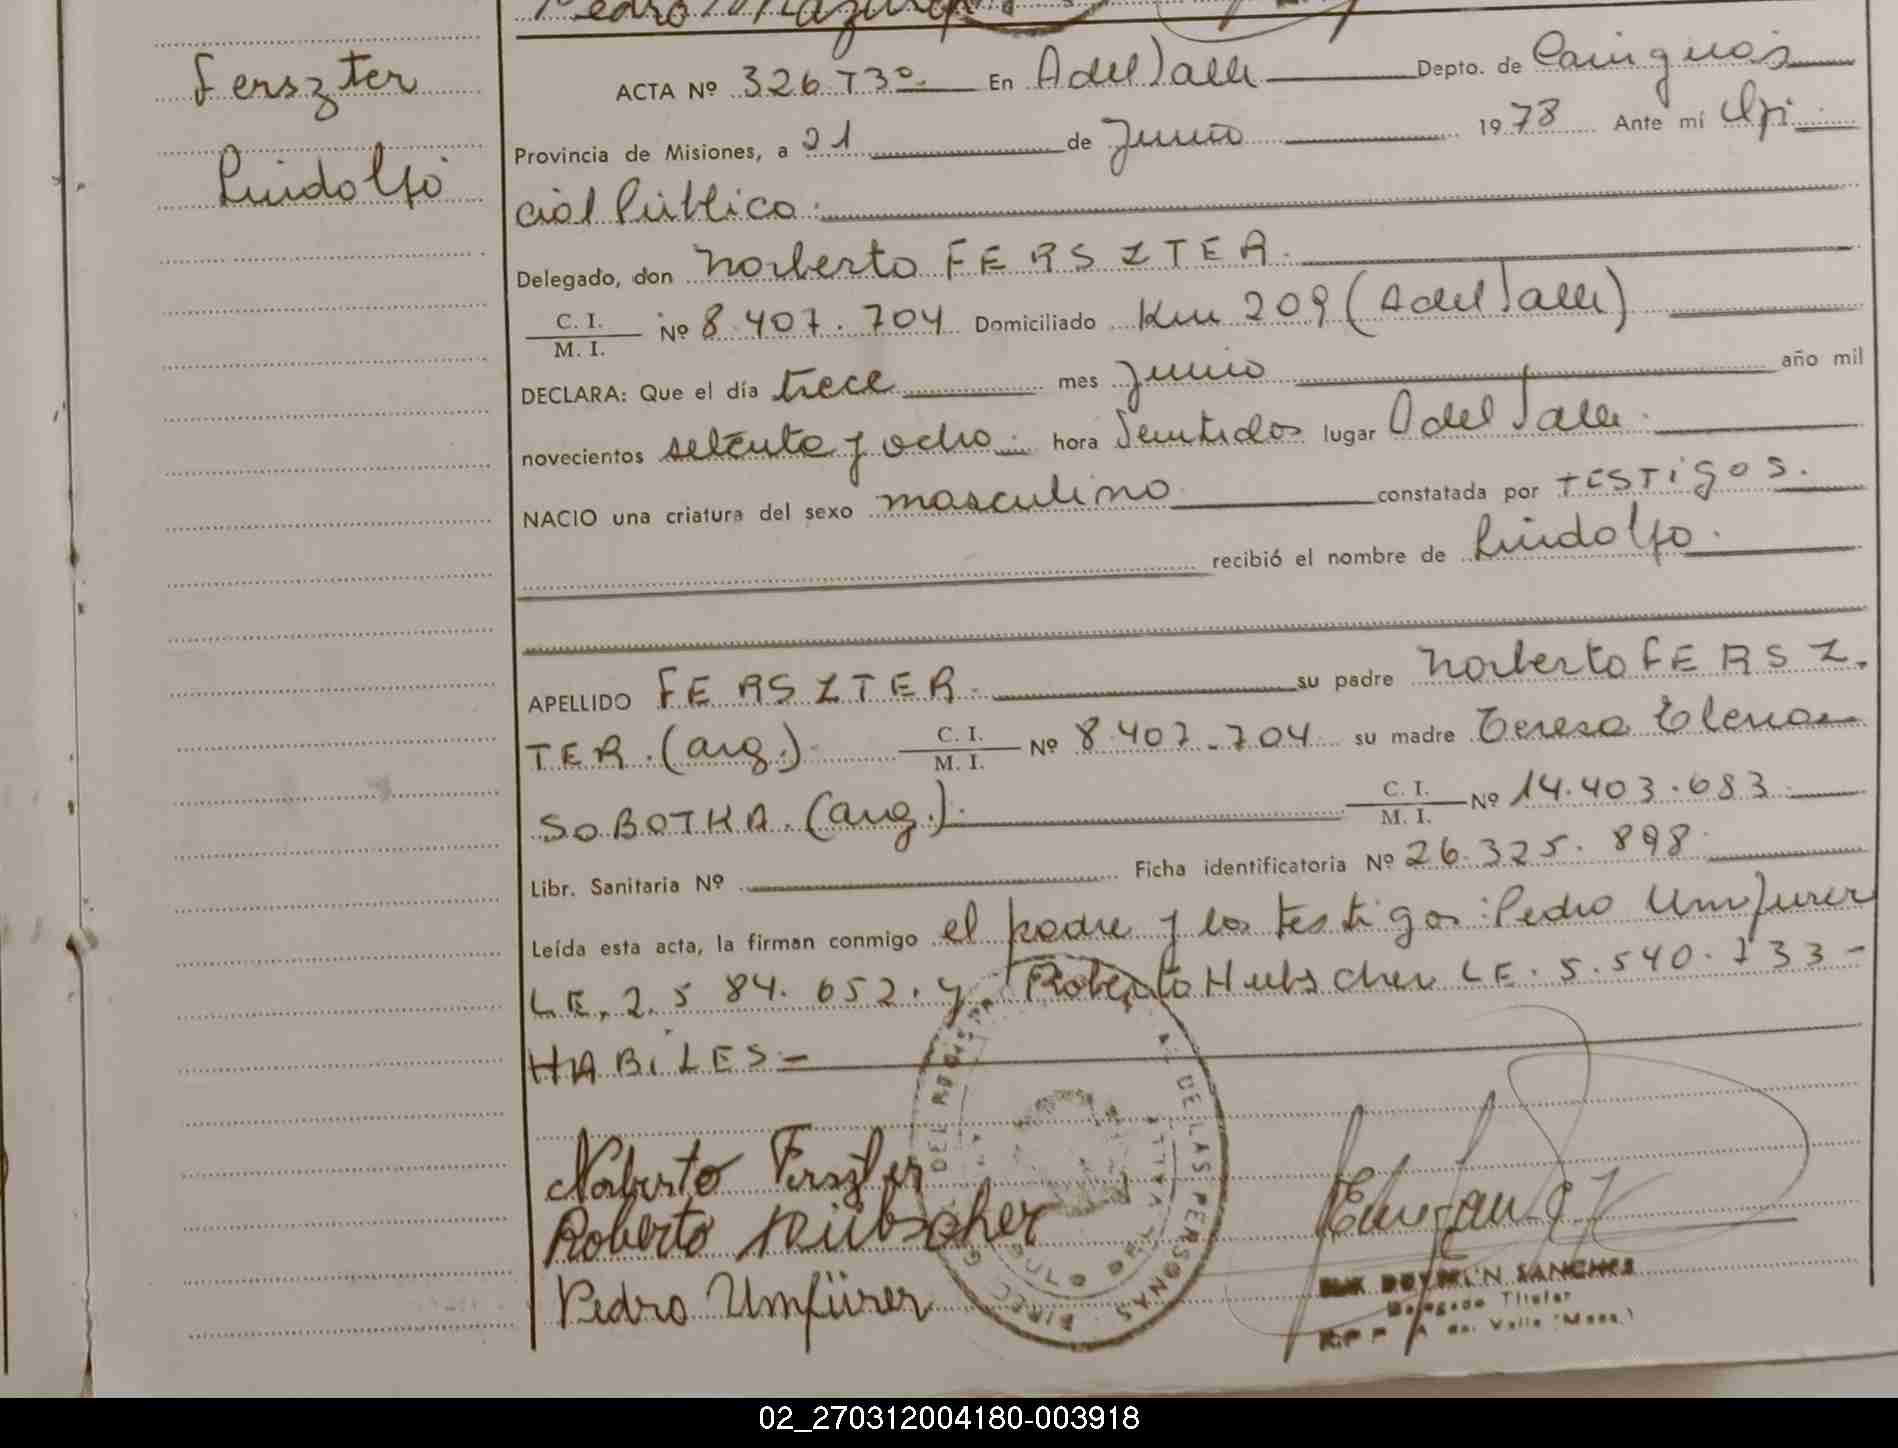 Pedro Mazur
Ferszter
Luidolfo
ACTA Nº 326 T3º. En A del Valle Depto. de Cainguás
Provincia de Misiones, a 21 de Junio 1978 Ante mí Ofi
cial Público.
Delegado, don Norberto FERSZTER.
C. I.
M. I. Nº 8.407.704 Domiciliado Km 209 (A del Valle)
DECLARA: Que el día trece mes Junio año mil
novecientos setenta y ocho hora Veintidos lugar A del Valle.
NACIO una criatura del sexo masculino constatada por TESTIGOS.
recibió el nombre de Luidolfo.
APELLIDO FERSZTER. su padre Norberto FERSZ
TER. (arg.) C. I.
M. I. Nº 8.407.704 su madre Teresa Elena
SOBOTKA. (arg.). C. I.
M. I. Nº 14.403.683
Libr. Sanitaria Nº Ficha identificatoria Nº 26.325.898
Leída esta acta, la firman conmigo el padre y los testigos: Pedro Umfurer
L.E. 2.584.652. y Roberto Hubscher LE. 5.540.733-
HABILES=
Norberto Ferszter
Roberto Hübscher
Pedro Umfürer
DE LAS PERSONAS
SANCHES
Delegado Titular
A. del Valle (Mnes.)
02_270312004180-003918